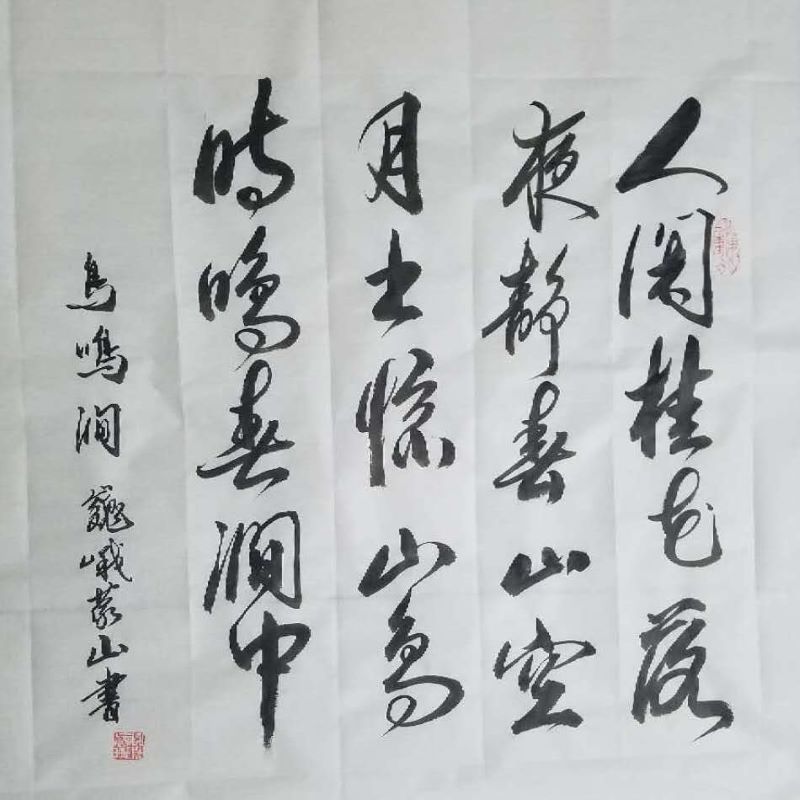 人闲桂花落
夜静春山空
月出惊山鸟
时鸣春涧中
鸟鸣涧 巍峨蒙山书